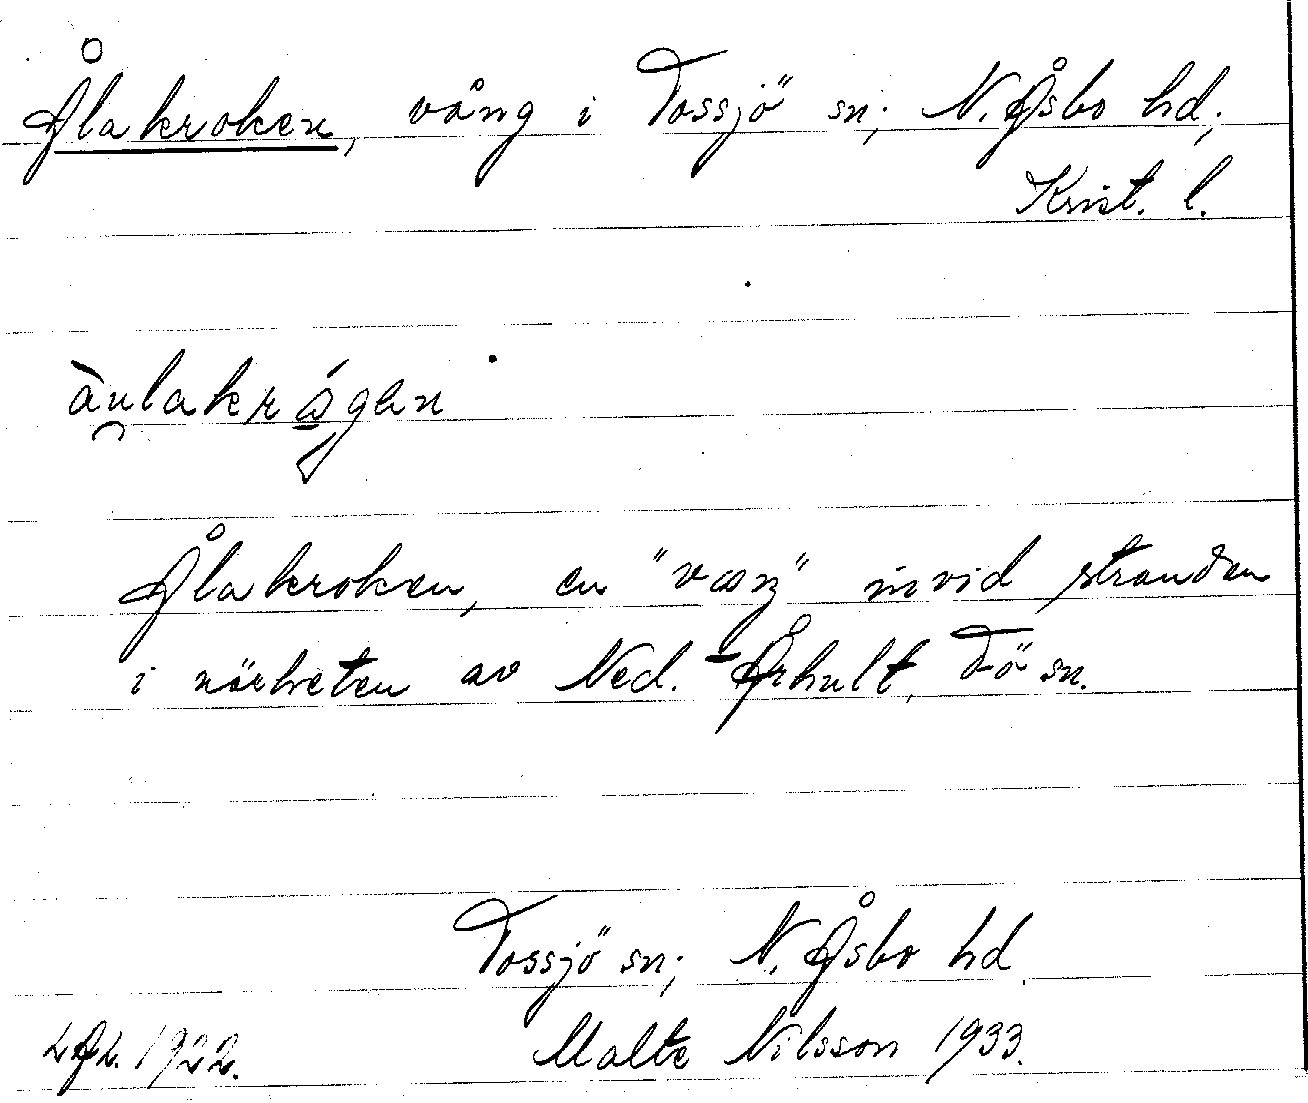 Ålakroken, vång i Tossjö sn; N. Åsbo hd;
Krist. l.
àulakrǻgan
Ålakroken, en "vaŋ" invid stranden
i närheten av Ned. Århult, Tö sn.
Tossjö sn; N. Åsbo hd.
1922. Malte Nilsson 1933.